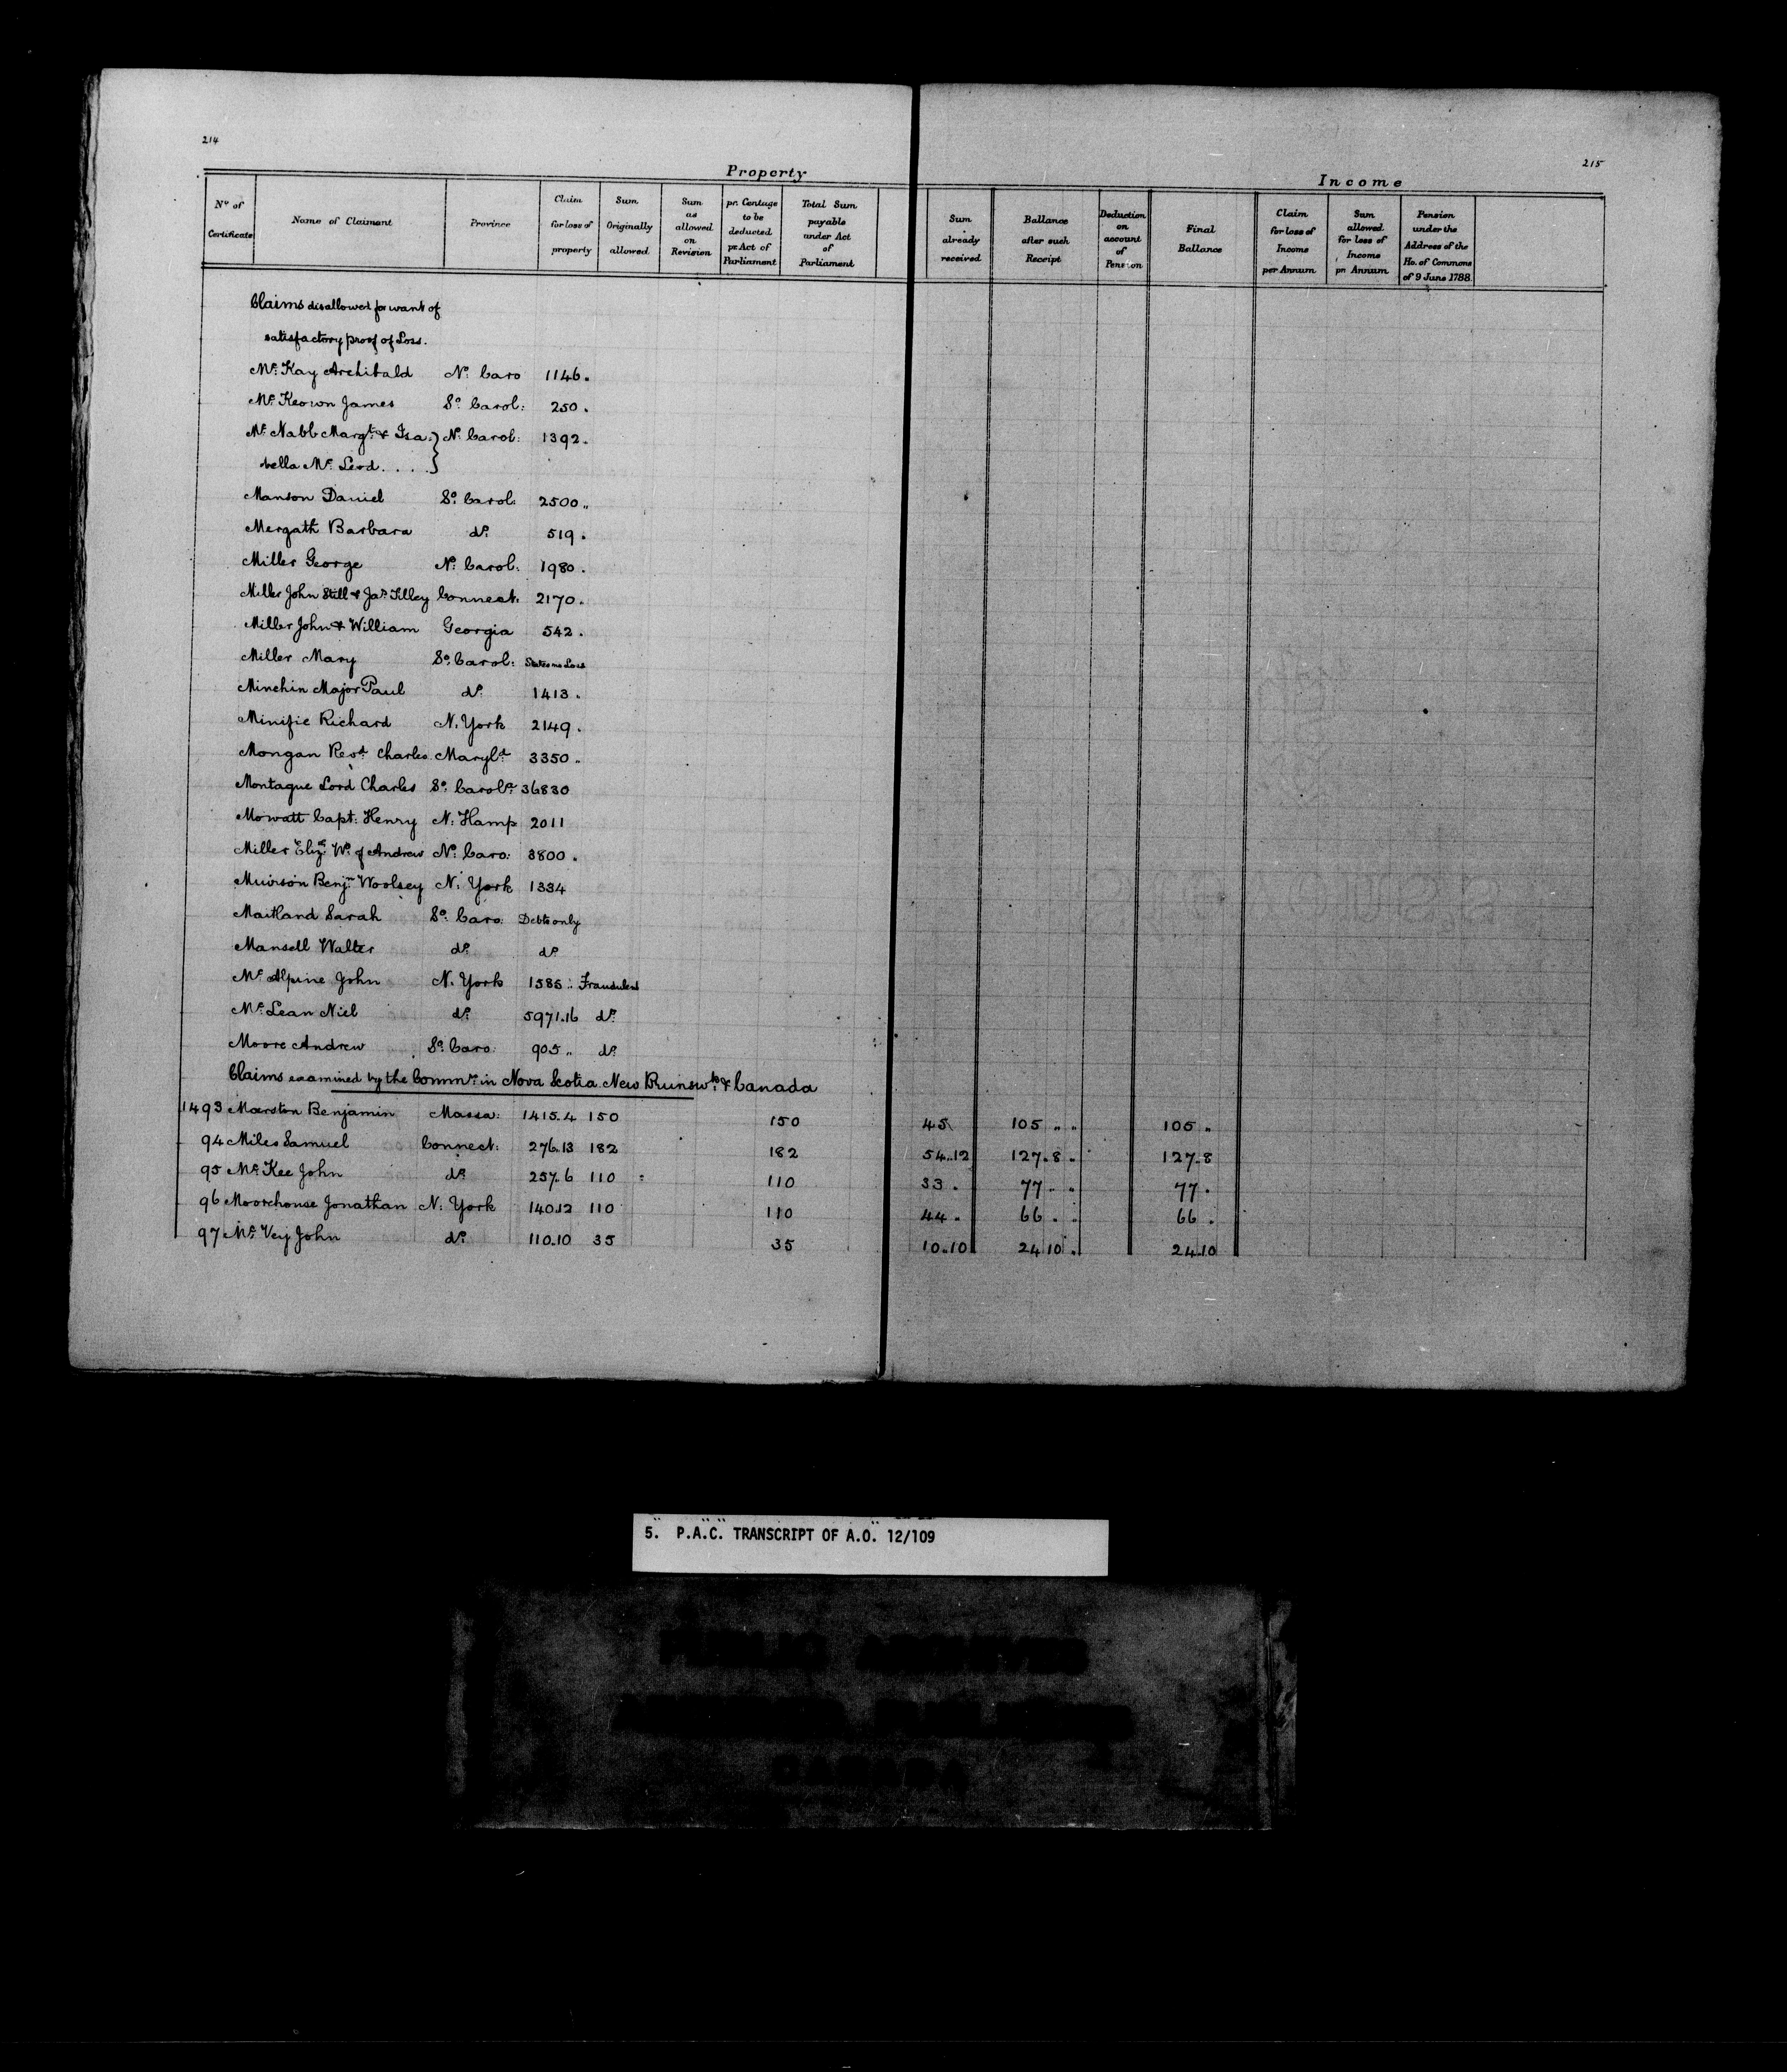 214
215
Property
Income
No of Certificate
Name of Claimant
Province
Claim for loss of property
Sum Originally allowed
Sum as allowed on Revision
pr. Centage to be deducted pr Act of Parliament
Total Sum payable under Act of Parliament
Sum already received
Ballance after such Receipt
Deduction on account of Pension
Final Ballance
Claim for loss of Income per Annum
Sum allowed for loss of Income pr Annum
Pension under the Address of the Ho. of Commons of 9 June 1788
Claims disallowed for want of
satisfactory proof of Loss.
Mc Kay Archibald No Caro 1146.
Mc Keown James So Carol: 250.
Mc Nabb Margt & Isa } No Carol: 1392.
bella Mc Leod . . . . }
Manson Daniel So Carol: 2500 ..
Mergath Barbara do 519.
Miller George No Carol: 1980.
Miller John Still & Jas Tilley Connect: 2170.
Miller John & William Georgia 542.
Miller Mary So Carol: States no Loss
Minchin Major Paul do 1413.
Minifie Richard N. York 2149.
Mongan Revd Charles Maryld 3350 ..
Montague Lord Charles So Carola 36830
Mowatt Capt: Henry N: Hamp 2011
Miller Eliza Wo of Andrew No Caro: 3800.
Muirson Benjn Woolsey N: York 1334
Maitland Sarah So Caro: Debts only
Mansell Walter do do
Mc Alpine John N. York 1585 .. Fraudulent
Mc Lean Niel do 5971.16 do
Moore Andrew So Caro: 905 .. do
Claims examined by the Commrs in Nova Scotia New Brunswk & Canada
1493 Marston Benjamin Massa: 1415.4 150 150 45 105 .. .. 105 ..
94 Miles Samuel Connect: 276.13 182 182 54..12 127.8 .. 127.8
95 Mc Kee John do 257.6 110 110 33 . 77 .. .. 77 .
96 Moorehouse Jonathan N: York 140.12 110 110 44 .. 66 . . 66 .
97 Mc Vey John do 110.10 35 35 10..10 24 10 . 24.10
5. P.A.C. TRANSCRIPT OF A.O. 12/109